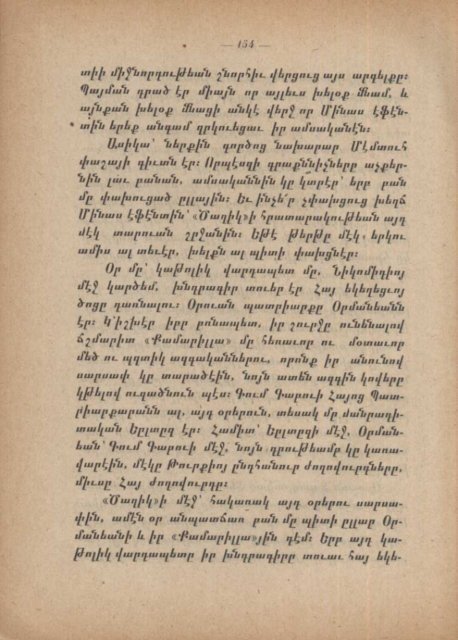 — 154 —
տիի միջնորդութեան շնորհիւ վերցուց այս արգելքը։
Պայման դրած էր միայն որ այլեւս խելօք մնամ, և
այնքան խելօք մնացի անկէ վերջ որ Մինաս էֆէն-
տին երեք անգամ զրկուեցաւ իր ամսականէն։
Ասիկա՝ ներքին գործոց նախարար Մէմտուհ
փաշայի գիւտն էր։ Որպէսզի գրաքննիչները աչքեր-
նին լաւ բանան, ամսականնին կը կտրէր՝ երբ բան
մը փախուցած ըլլային։ Եւ ինչե՜ր չփախցուց խեղճ
Մինաս էֆէնտին՝ «Ծաղիկ»ի հրատարակութեան այդ
մէկ տարուան շրջանին։ Եթէ թերթը մէկ երկու
ամիս ալ տեւէր, խելքն ալ պիտի փախցնէր։
Օր մը՝ կաթոլիկ վարդապետ մը, Նիկոմիդիոյ
մէջ կարծեմ, խնդրագիր տուեր էր Հայ եկեղեցւոյ
ծոցը դառնալու։ Օրուան պատրիարքը Օրմանեանն
էր։ Կ՚իշխէր իբր բռնապետ, իր շուրջը ունենալով
ճշմարիտ «Քամարիլլա» մը հեռաւոր ու մօտաւոր
մեծ ու պզտիկ ազգականներու, որոնք իր անունով
սարսափ կը տարածէին, նոյն ատեն ազգին կովերը
կթելով ուզածնուն պէս։ Գում Գաբուի Հայոց Պատ-
րիարքարանն ալ, այդ օրերուն, տեսակ մը ծանրադի-
տական Եըլտըզ էր։ Համիտ՝ Եըլտըզի մէջ, Օրման-
եան՝ Գում Գաբուի մէջ, նոյն դրութեամբ կը կառա-
վարէին, մէկը Թուրքիոյ ընդհանուր ժողովուրդները,
միւսը Հայ ժողովուրդը։
«Ծաղիկ»ի մէջ՝ հակառակ այդ օրերու սարսա-
փին, ամէն օր անպատճառ բան մը պիտի ըլլար Օր-
մանեանի և իր «Քամարիլլա»յին դէմ։ Երբ այդ կա-
թոլիկ վարդապետը իր խնդրագիրը տուաւ հայ եկե-